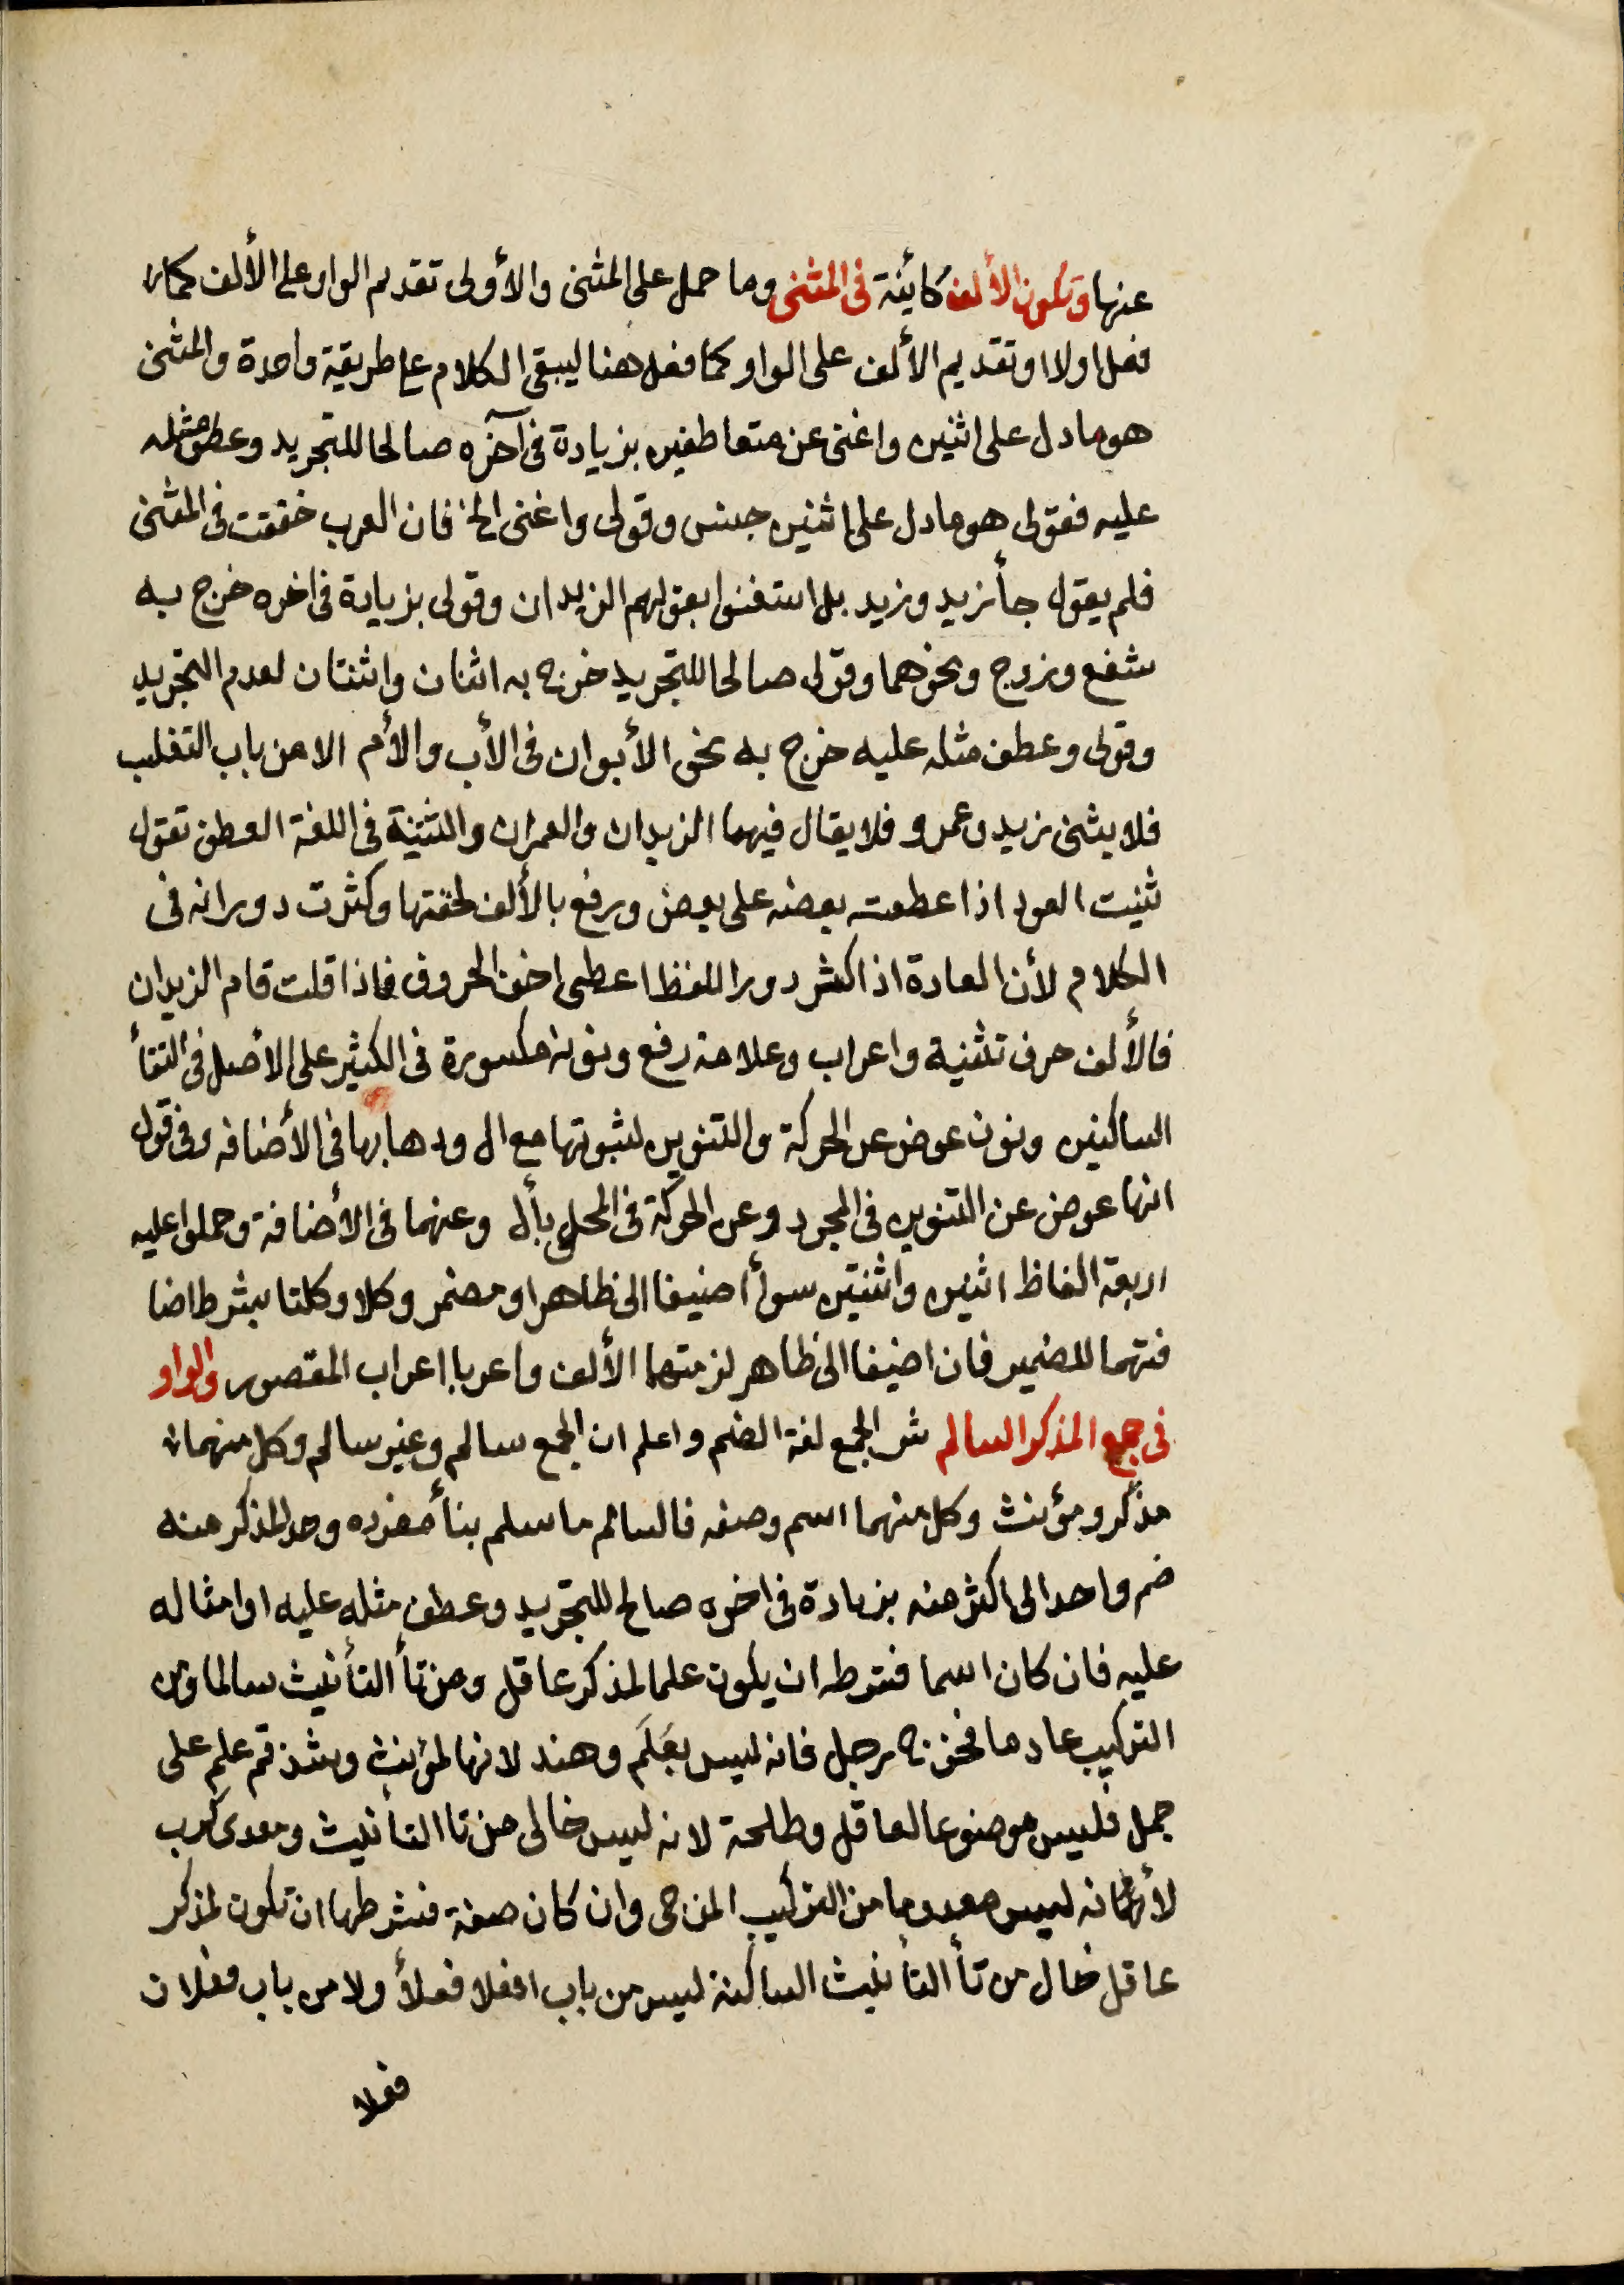 عنها وتكون الألف كائنة فى المثنى وما حمل على المثنى والأولى تقديم الواو على الألف كما
فعل اولا او تقديم الألف على الواو كما فعل هنا ليبقى الكلام على طريقة واحدة والمثنى
هو ما دل على اثنين واغنى عن متعاطفين بزيادة فى آخره صالحا للتجريد وعطف مثله
عليه فقولى هو ما دل على اثنين جنس وقولى واغنى الخ فان العرب خففت فى المثنى
فلم يقول جأ زيد وزيد بل استغنوا بقولهم الزيدان وقولى بزيادة فى اخره خرج به
شفع وزوج ونحوهما وقولى صالحا للتجريد خرج به اثنان واثنتان لعدم التجريد
وقولى وعطف مثله عليه خرج به نحو الأبوان فى الأب والأم الا من باب التغلب
فلا يثنى زيد وعمرو فلا يقال فيهما الزيدان والعمران والمثنية فى اللغة العطف تقول
ثنيت العود اذا عطفت بعضه على بعض ورفع بالألف لخفتها وكثرت دورانه فى
الكلام لأن العادة اذا كثر دور اللفظ اعطى اخف الحروف فاذا قلت قام الزيدان
فالألف حرف تثنية واعراب وعلامة رفع ونونه مكسورة فى الكثير على الأصل فى التقأ
الساكنين ونون عوض عن الحركة والتنوين لثبوتها مع ال ودهابها فى الأضافه وفى قول
انها عوض عن التنوين فى المجرد وعن الحركة فى المحلى بأل وعنهما فى الأضافة وحملوا عليه
اربعة الفاظ اثنين واثنتين سوأ اضيفا الى ظاهر او مضمر وكلا وكلتا بشرط اضا
فتهما للضمير فان اضيفا الى ظاهر لزمتهما الألف واعربا اعراب المقصور والواو
فى جمع المذكر السالم ش الجمع لغة الضم واعلم ان الجمع سالم وغير سالم وكل منهما
مذكر ومؤنث وكل منهما اسم وصفه فالسالم ما سلم بنأ مفرده وحد المذكر منه
ضم واحد الى اكثر منه بزيادة فى اخره صالح للتجريد وعطف مثله عليه او امثاله
عليه فان كان اسما فشرطه ان يكون علما لمذكر عاقل ومن تأ التأنيث سالما ومن
التركيب عادما فخرج رجل فانه ليس بعَلَم وهند لانها لمؤنث وشذقم علم على
جمل فليس موضوعا لعاقل وطلحة لانه ليس خالى من تا التأنيث ومعدى كرب
لأنه ليس معدوما من التركيب المزجى وان كان صفة فشرطها ان تكون لمذكر
عاقل خال من تأ التأنيث الساكنة ليس من باب افعلا فعلأ ولا من باب فعلان
فعلا